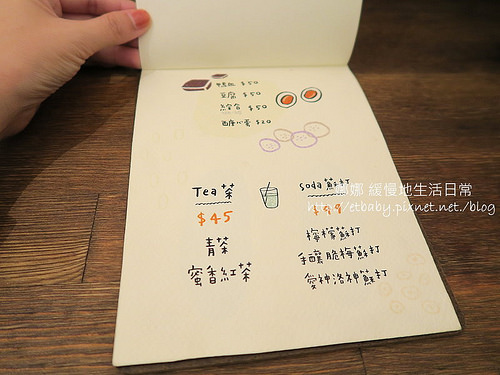 鴨血 $50
豆腐 $50
綜合 $50
酉雋心蛋 $20
Tea 茶
$45
青茶
蜜香紅茶
soda 蘇打
檸檬蘇打
手釀脆梅蘇打
愛神洛神蘇打
娜 緩慢地生活日常
http://etbaby.pixnet.net/blog